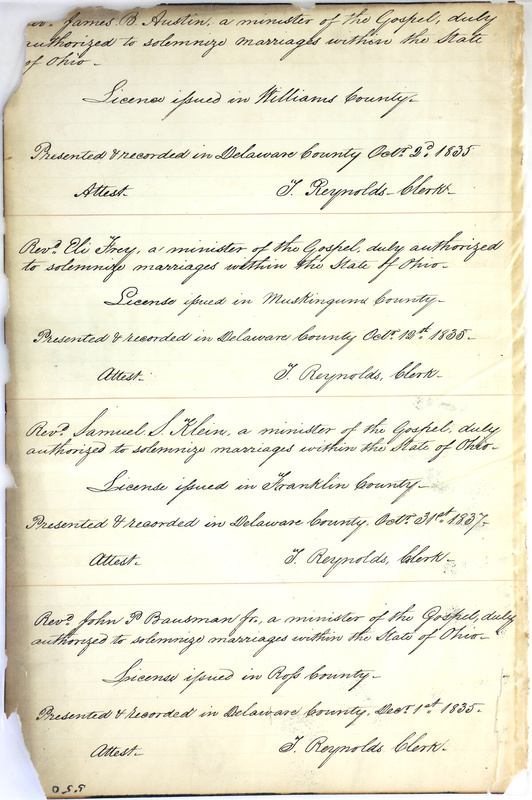 James B. Austin, a minister of the Gospel, duly
authorized to solemnize marriages within the State
of Ohio-
Licence issued in Williams County-
Presented & recorded in Delaware County Octr. 2d. 1835
Attest- T. Reynolds- Clerk-
Revd. Eli Frey, a minister of the Gospel, duly authorized
to solemnize marriages within the State of Ohio-
License issued in Muskingum County-
Presented & recorded in Delaware County Octr. 12st. 1835-
Attest- T. Reynolds, Clerk-
Revd. Samuel S. Klein, a minister of the Gospel, duly
authorized to solemnize marriages within the State of Ohio-
License issued in Franklin County-
Presented & recorded in Delaware County, Octr. 31st. 1837-
Attest- T. Reynolds, Clerk-
Revd. John P. Bausman Jr., a minister of the Gospel, duly
authorized to solemnize marriages within the State of Ohio-
License issued in Ross County-
Presented & recorded in Delaware County, Decr. 1st. 1835-
Attest- T. Reynolds Clerk-